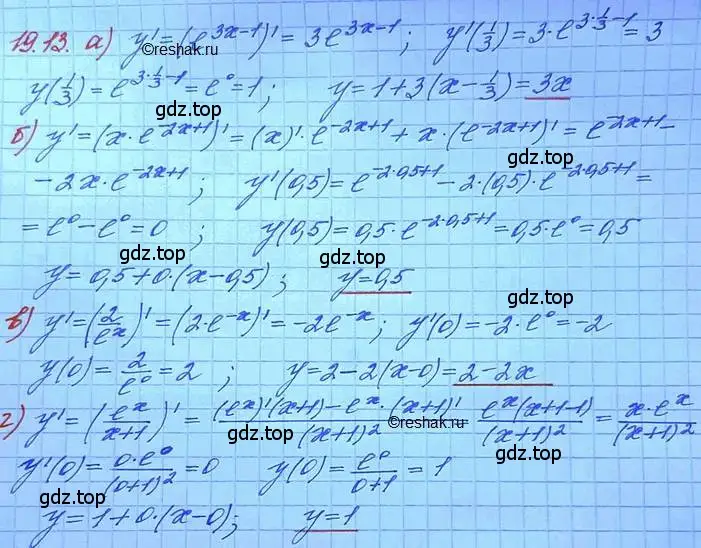 19.13. а) y' = (e^{3x-1})' = 3e^{3x-1}; y'(1/3) = 3·e^{3·1/3-1} = 3
©reshak.ru
y(1/3) = e^{3·1/3-1} = e^0 = 1; y = 1+3(x-1/3) = 3x
gdz.top
gdz.top
б) y' = (x·e^{-2x+1})' = (x)'·e^{-2x+1} + x·(e^{-2x+1})' = e^{-2x+1} -
gdz.top
- 2x·e^{-2x+1}; y'(0,5) = e^{-2·0,5+1} - 2·(0,5)·e^{-2·0,5+1} =
= e^0 - e^0 = 0; y(0,5) = 0,5·e^{-2·0,5+1} = 0,5·e^0 = 0,5
gdz.top
gdz.top
y = 0,5+0·(x-0,5); y = 0,5
gdz.top
в) y' = (2/e^x)' = (2·e^{-x})' = -2e^{-x}; y'(0) = -2·e^0 = -2
y(0) = 2/e^0 = 2; y = 2-2(x-0) = 2-2x
gdz.top
г) y' = (e^x/(x+1))' = ((e^x)'(x+1)-e^x·(x+1)')/(x+1)^2 = e^x(x+1-1)/(x+1)^2 = x·e^x/(x+1)^2
©reshak.ru
gdz.top
y'(0) = 0·e^0/(0+1)^2 = 0 y(0) = e^0/(0+1) = 1
gdz.top
y = 1+0·(x-0); y = 1
gdz.top